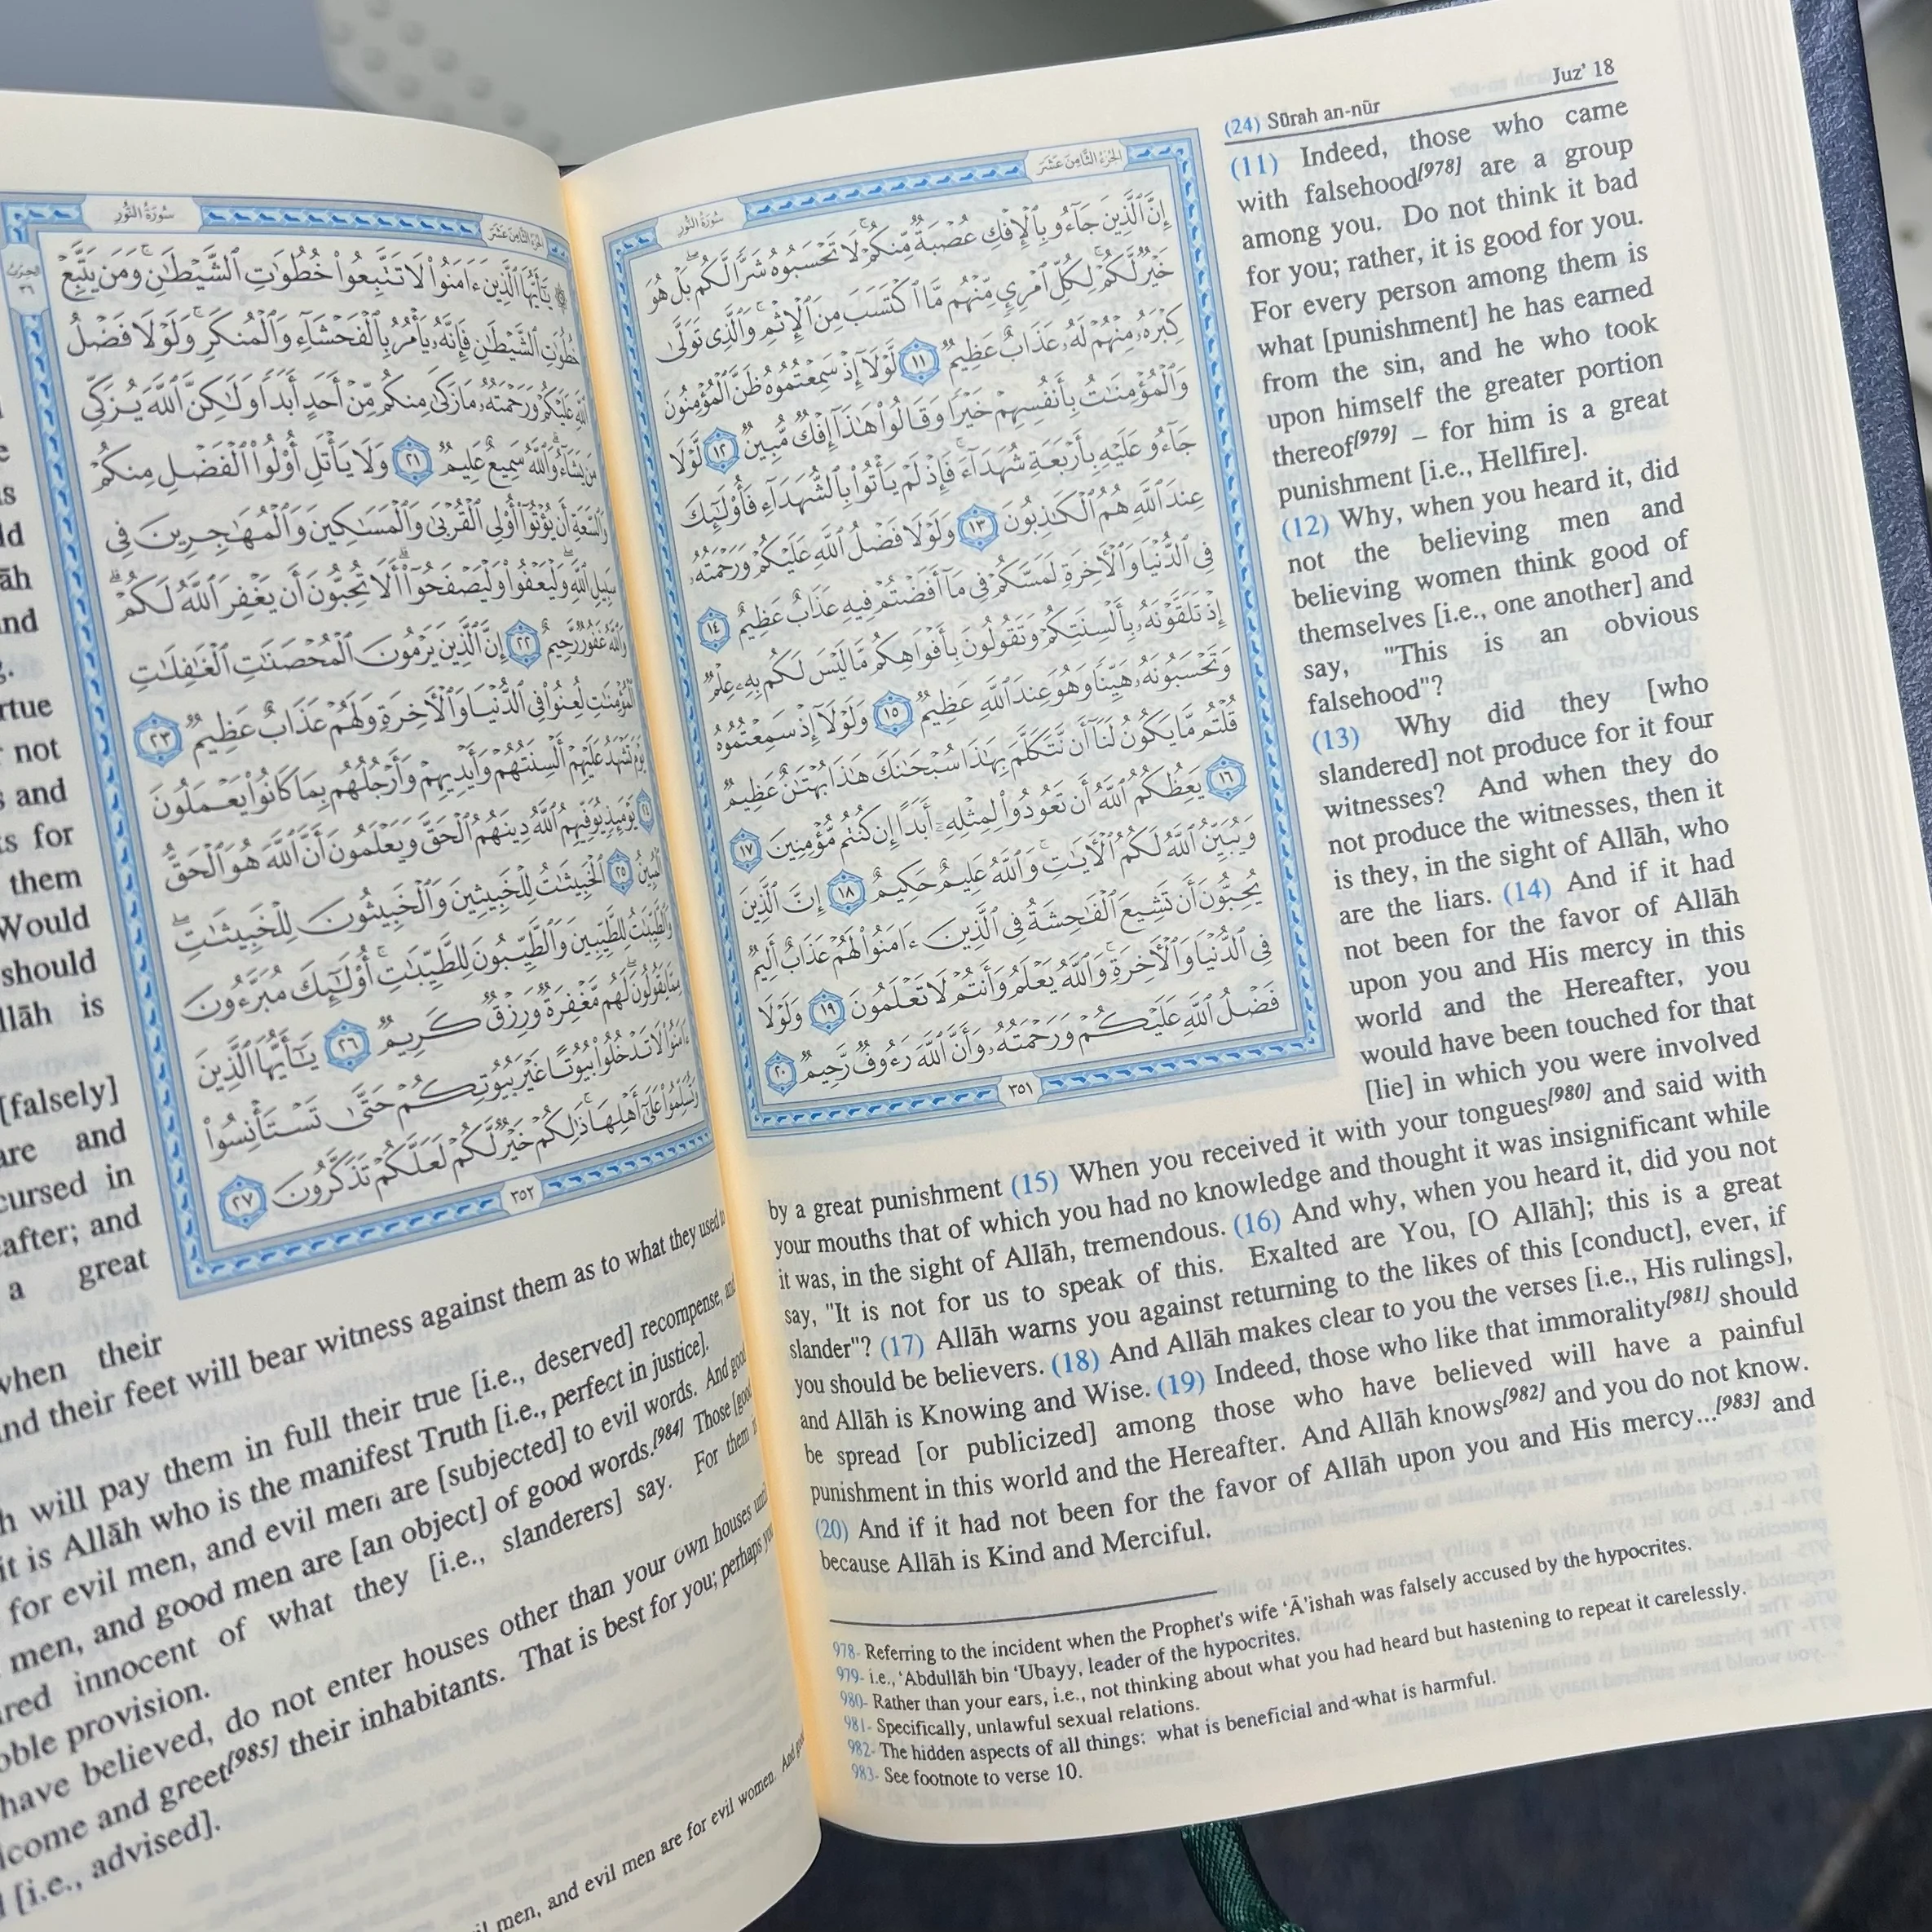 (24) Sūrah an-nūr Juz' 18
سُورَةُ النُّورِ الجُزْءُ الثَّامِنَ عَشَرَ
إِنَّ ٱلَّذِينَ جَآءُو بِٱلْإِفْكِ عُصْبَةٌ مِّنكُمْ ۚ لَا تَحْسَبُوهُ شَرًّا لَّكُم ۖ بَلْ هُوَ
خَيْرٌ لَّكُمْ ۚ لِكُلِّ ٱمْرِئٍ مِّنْهُم مَّا ٱكْتَسَبَ مِنَ ٱلْإِثْمِ ۚ وَٱلَّذِى تَوَلَّىٰ
كِبْرَهُۥ مِنْهُمْ لَهُۥ عَذَابٌ عَظِيمٌ ١١ لَّوْلَآ إِذْ سَمِعْتُمُوهُ ظَنَّ ٱلْمُؤْمِنُونَ
وَٱلْمُؤْمِنَٰتُ بِأَنفُسِهِمْ خَيْرًا وَقَالُوا۟ هَٰذَآ إِفْكٌ مُّبِينٌ ١٢ لَّوْلَا
جَآءُو عَلَيْهِ بِأَرْبَعَةِ شُهَدَآءَ ۚ فَإِذْ لَمْ يَأْتُوا۟ بِٱلشُّهَدَآءِ فَأُو۟لَٰٓئِكَ
عِندَ ٱللَّهِ هُمُ ٱلْكَٰذِبُونَ ١٣ وَلَوْلَا فَضْلُ ٱللَّهِ عَلَيْكُمْ وَرَحْمَتُهُۥ
فِى ٱلدُّنْيَا وَٱلْءَاخِرَةِ لَمَسَّكُمْ فِى مَآ أَفَضْتُمْ فِيهِ عَذَابٌ عَظِيمٌ ١٤
إِذْ تَلَقَّوْنَهُۥ بِأَلْسِنَتِكُمْ وَتَقُولُونَ بِأَفْوَاهِكُم مَّا لَيْسَ لَكُم بِهِۦ عِلْمٌ
وَتَحْسَبُونَهُۥ هَيِّنًا وَهُوَ عِندَ ٱللَّهِ عَظِيمٌ ١٥ وَلَوْلَآ إِذْ سَمِعْتُمُوهُ
قُلْتُم مَّا يَكُونُ لَنَآ أَن نَّتَكَلَّمَ بِهَٰذَا سُبْحَٰنَكَ هَٰذَا بُهْتَٰنٌ عَظِيمٌ
١٦ يَعِظُكُمُ ٱللَّهُ أَن تَعُودُوا۟ لِمِثْلِهِۦٓ أَبَدًا إِن كُنتُم مُّؤْمِنِينَ ١٧
وَيُبَيِّنُ ٱللَّهُ لَكُمُ ٱلْءَايَٰتِ ۚ وَٱللَّهُ عَلِيمٌ حَكِيمٌ ١٨ إِنَّ ٱلَّذِينَ
يُحِبُّونَ أَن تَشِيعَ ٱلْفَٰحِشَةُ فِى ٱلَّذِينَ ءَامَنُوا۟ لَهُمْ عَذَابٌ أَلِيمٌ
فِى ٱلدُّنْيَا وَٱلْءَاخِرَةِ ۚ وَٱللَّهُ يَعْلَمُ وَأَنتُمْ لَا تَعْلَمُونَ ١٩ وَلَوْلَا
فَضْلُ ٱللَّهِ عَلَيْكُمْ وَرَحْمَتُهُۥ وَأَنَّ ٱللَّهَ رَءُوفٌ رَّحِيمٌ ٢٠
٣٥١
(11) Indeed, those who came
with falsehood[978] are a group
among you. Do not think it bad
for you; rather, it is good for you.
For every person among them is
what [punishment] he has earned
from the sin, and he who took
upon himself the greater portion
thereof[979] – for him is a great
punishment [i.e., Hellfire].
(12) Why, when you heard it, did
not the believing men and
believing women think good of
themselves [i.e., one another] and
say, "This is an obvious
falsehood"?
(13) Why did they [who
slandered] not produce for it four
witnesses? And when they do
not produce the witnesses, then it
is they, in the sight of Allāh, who
are the liars. (14) And if it had
not been for the favor of Allāh
upon you and His mercy in this
world and the Hereafter, you
would have been touched for that
[lie] in which you were involved
by a great punishment (15) When you received it with your tongues[980] and said with
your mouths that of which you had no knowledge and thought it was insignificant while
it was, in the sight of Allāh, tremendous. (16) And why, when you heard it, did you not
say, "It is not for us to speak of this. Exalted are You, [O Allāh]; this is a great
slander"? (17) Allāh warns you against returning to the likes of this [conduct], ever, if
you should be believers. (18) And Allāh makes clear to you the verses [i.e., His rulings],
and Allāh is Knowing and Wise. (19) Indeed, those who like that immorality[981] should
be spread [or publicized] among those who have believed will have a painful
punishment in this world and the Hereafter. And Allāh knows[982] and you do not know.
(20) And if it had not been for the favor of Allāh upon you and His mercy...[983] and
because Allāh is Kind and Merciful.
978- Referring to the incident when the Prophet's wife ‘Ā’ishah was falsely accused by the hypocrites.
979- i.e., ‘Abdullāh bin ‘Ubayy, leader of the hypocrites.
980- Rather than your ears, i.e., not thinking about what you had heard but hastening to repeat it carelessly.
981- Specifically, unlawful sexual relations.
982- The hidden aspects of all things: what is beneficial and what is harmful.
983- See footnote to verse 10.
سُورَةُ النُّورِ الجُزْءُ الثَّامِنَ عَشَرَ
الحِزْبُ
٣٦
۞ يَٰٓأَيُّهَا ٱلَّذِينَ ءَامَنُوا۟ لَا تَتَّبِعُوا۟ خُطُوَٰتِ ٱلشَّيْطَٰنِ ۚ وَمَن يَتَّبِعْ
خُطُوَٰتِ ٱلشَّيْطَٰنِ فَإِنَّهُۥ يَأْمُرُ بِٱلْفَحْشَآءِ وَٱلْمُنكَرِ ۚ وَلَوْلَا فَضْلُ
ٱللَّهِ عَلَيْكُمْ وَرَحْمَتُهُۥ مَا زَكَىٰ مِنكُم مِّنْ أَحَدٍ أَبَدًا وَلَٰكِنَّ ٱللَّهَ يُزَكِّى
مَن يَشَآءُ ۗ وَٱللَّهُ سَمِيعٌ عَلِيمٌ ٢١ وَلَا يَأْتَلِ أُو۟لُوا۟ ٱلْفَضْلِ مِنكُمْ
وَٱلسَّعَةِ أَن يُؤْتُوٓا۟ أُو۟لِى ٱلْقُرْبَىٰ وَٱلْمَسَٰكِينَ وَٱلْمُهَٰجِرِينَ فِى
سَبِيلِ ٱللَّهِ ۖ وَلْيَعْفُوا۟ وَلْيَصْفَحُوٓا۟ ۗ أَلَا تُحِبُّونَ أَن يَغْفِرَ ٱللَّهُ لَكُمْ ۗ
وَٱللَّهُ غَفُورٌ رَّحِيمٌ ٢٢ إِنَّ ٱلَّذِينَ يَرْمُونَ ٱلْمُحْصَنَٰتِ ٱلْغَٰفِلَٰتِ
ٱلْمُؤْمِنَٰتِ لُعِنُوا۟ فِى ٱلدُّنْيَا وَٱلْءَاخِرَةِ وَلَهُمْ عَذَابٌ عَظِيمٌ ٢٣
يَوْمَ تَشْهَدُ عَلَيْهِمْ أَلْسِنَتُهُمْ وَأَيْدِيهِمْ وَأَرْجُلُهُم بِمَا كَانُوا۟ يَعْمَلُونَ
٢٤ يَوْمَئِذٍ يُوَفِّيهِمُ ٱللَّهُ دِينَهُمُ ٱلْحَقَّ وَيَعْلَمُونَ أَنَّ ٱللَّهَ هُوَ ٱلْحَقُّ
ٱلْمُبِينُ ٢٥ ٱلْخَبِيثَٰتُ لِلْخَبِيثِينَ وَٱلْخَبِيثُونَ لِلْخَبِيثَٰتِ ۖ
وَٱلطَّيِّبَٰتُ لِلطَّيِّبِينَ وَٱلطَّيِّبُونَ لِلطَّيِّبَٰتِ ۚ أُو۟لَٰٓئِكَ مُبَرَّءُونَ
مِمَّا يَقُولُونَ ۖ لَهُم مَّغْفِرَةٌ وَرِزْقٌ كَرِيمٌ ٢٦ يَٰٓأَيُّهَا ٱلَّذِينَ
ءَامَنُوا۟ لَا تَدْخُلُوا۟ بُيُوتًا غَيْرَ بُيُوتِكُمْ حَتَّىٰ تَسْتَأْنِسُوا۟
وَتُسَلِّمُوا۟ عَلَىٰٓ أَهْلِهَا ۚ ذَٰلِكُمْ خَيْرٌ لَّكُمْ لَعَلَّكُمْ تَذَكَّرُونَ ٢٧
٣٥٢
āh
and
rtue
not
s and
ts for
them
Would
should
llāh is
[falsely]
are and
cursed in
after; and
a great
when their
and their feet will bear witness against them as to what they used to
h will pay them in full their true [i.e., deserved] recompense, and
it is Allāh who is the manifest Truth [i.e., perfect in justice].
for evil men, and evil men are [subjected] to evil words. And good
men, and good men are [an object] of good words.[984] Those [good
red innocent of what they [i.e., slanderers] say. For them
oble provision.
have believed, do not enter houses other than your own houses until
lcome and greet[985] their inhabitants. That is best for you; perhaps you
[i.e., advised].
il men, and evil men are for evil women. And good